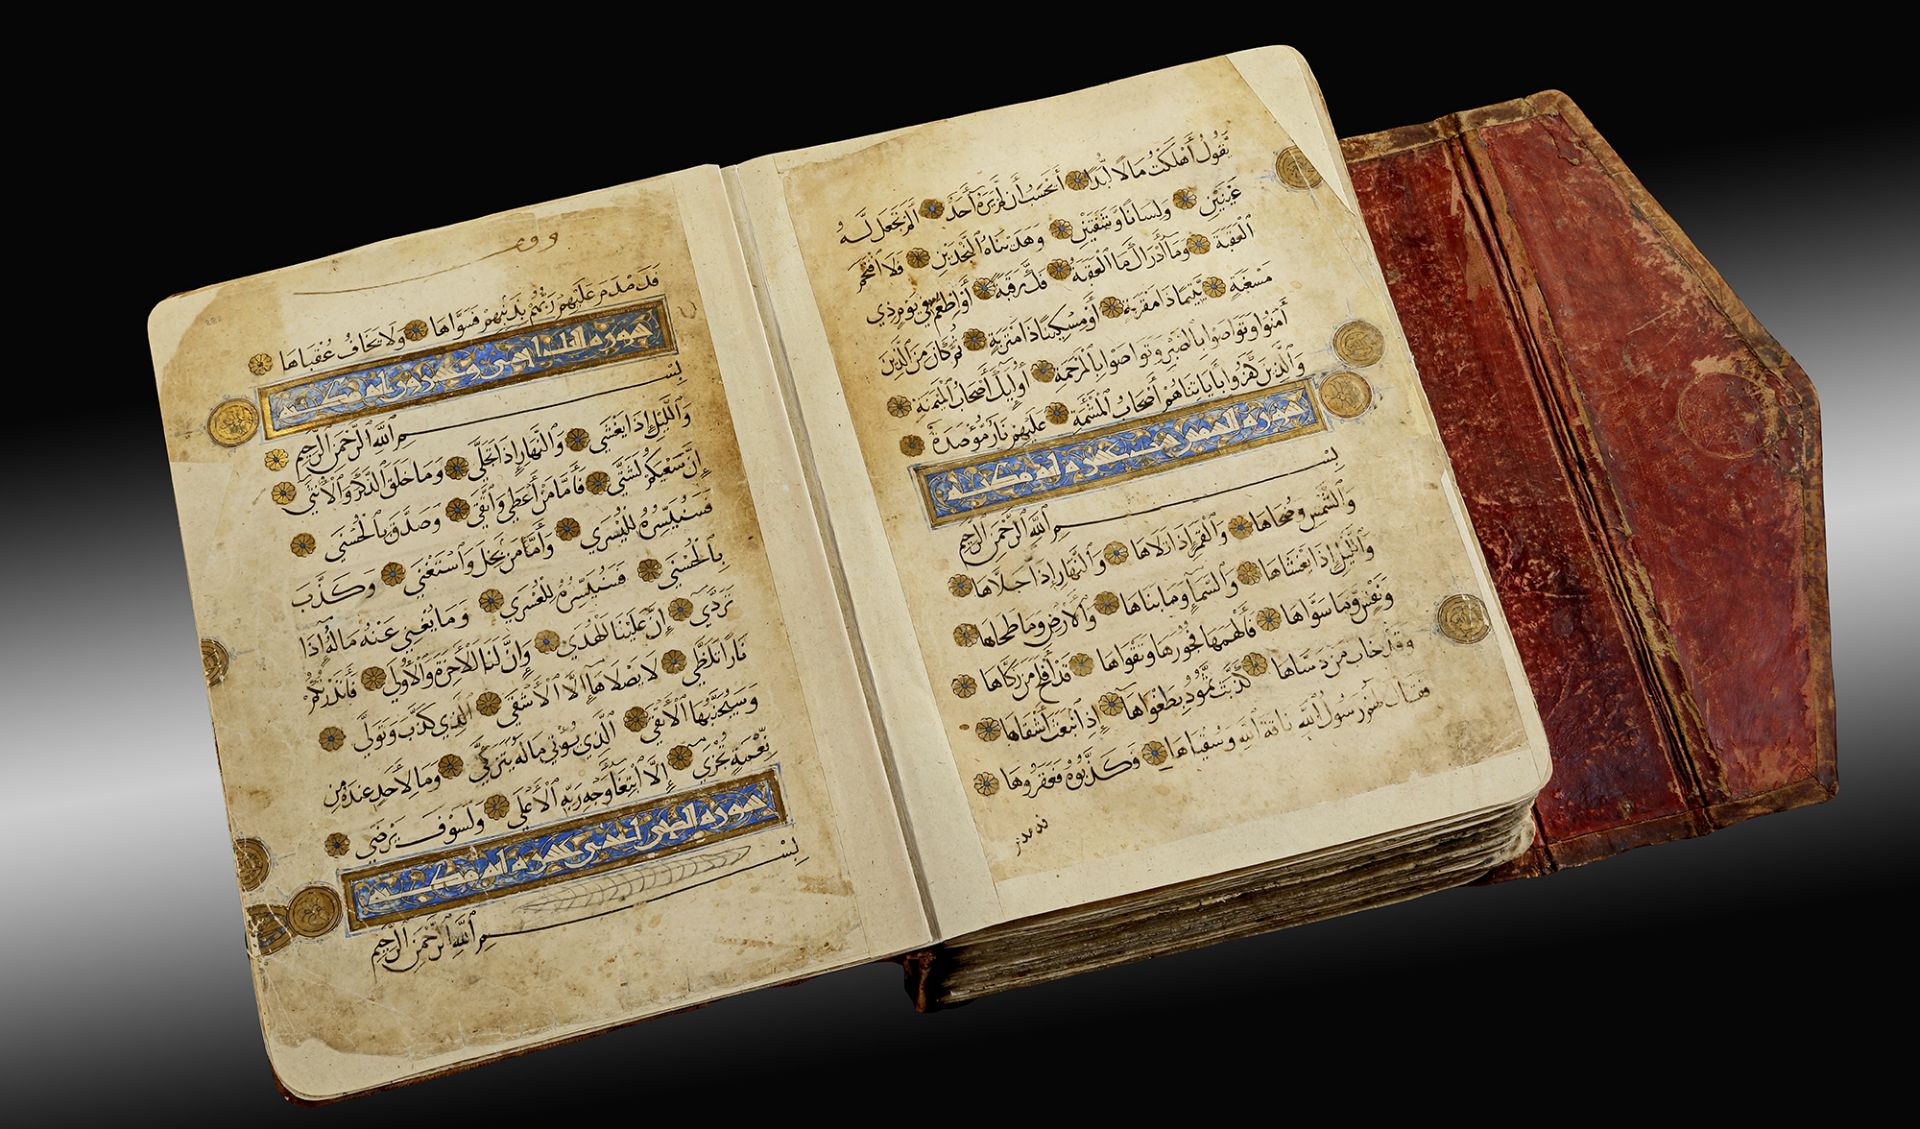 يَقُولُ أَهْلَكْتُ مَالًا لُّبَدًا أَيَحْسَبُ أَن لَّمْ يَرَهُ أَحَدٌ أَلَمْ نَجْعَل لَّهُ
عَيْنَيْنِ وَلِسَانًا وَشَفَتَيْنِ وَهَدَيْنَاهُ النَّجْدَيْنِ فَلَا اقْتَحَمَ
الْعَقَبَةَ وَمَا أَدْرَاكَ مَا الْعَقَبَةُ فَكُّ رَقَبَةٍ أَوْ إِطْعَامٌ فِي يَوْمٍ ذِي
مَسْغَبَةٍ يَتِيمًا ذَا مَقْرَبَةٍ أَوْ مِسْكِينًا ذَا مَتْرَبَةٍ ثُمَّ كَانَ مِنَ الَّذِينَ
آمَنُوا وَتَوَاصَوْا بِالصَّبْرِ وَتَوَاصَوْا بِالْمَرْحَمَةِ أُولَٰئِكَ أَصْحَابُ الْمَيْمَنَةِ
وَالَّذِينَ كَفَرُوا بِآيَاتِنَا هُمْ أَصْحَابُ الْمَشْأَمَةِ عَلَيْهِمْ نَارٌ مُّؤْصَدَةٌ
سورة الشمس خمس عشرة اية مكية
بِسْمِ اللَّهِ الرَّحْمَٰنِ الرَّحِيمِ
وَالشَّمْسِ وَضُحَاهَا وَالْقَمَرِ إِذَا تَلَاهَا وَالنَّهَارِ إِذَا جَلَّاهَا
وَاللَّيْلِ إِذَا يَغْشَاهَا وَالسَّمَاءِ وَمَا بَنَاهَا وَالْأَرْضِ وَمَا طَحَاهَا
وَنَفْسٍ وَمَا سَوَّاهَا فَأَلْهَمَهَا فُجُورَهَا وَتَقْوَاهَا قَدْ أَفْلَحَ مَن زَكَّاهَا
وَقَدْ خَابَ مَن دَسَّاهَا كَذَّبَتْ ثَمُودُ بِطَغْوَاهَا إِذِ انبَعَثَ أَشْقَاهَا
فَقَالَ لَهُمْ رَسُولُ اللَّهِ نَاقَةَ اللَّهِ وَسُقْيَاهَا فَكَذَّبُوهُ فَعَقَرُوهَا
فدمدم
وقف
فَدَمْدَمَ عَلَيْهِمْ رَبُّهُم بِذَنبِهِمْ فَسَوَّاهَا وَلَا يَخَافُ عُقْبَاهَا
سورة الليل احدى وعشرون اية مكية
بِسْمِ اللَّهِ الرَّحْمَٰنِ الرَّحِيمِ
وَاللَّيْلِ إِذَا يَغْشَى وَالنَّهَارِ إِذَا تَجَلَّى وَمَا خَلَقَ الذَّكَرَ وَالْأُنثَى
إِنَّ سَعْيَكُمْ لَشَتَّى فَأَمَّا مَنْ أَعْطَى وَاتَّقَى وَصَدَّقَ بِالْحُسْنَى
فَسَنُيَسِّرُهُ لِلْيُسْرَى وَأَمَّا مَن بَخِلَ وَاسْتَغْنَى وَكَذَّبَ
بِالْحُسْنَى فَسَنُيَسِّرُهُ لِلْعُسْرَى وَمَا يُغْنِي عَنْهُ مَالُهُ إِذَا
تَرَدَّى إِنَّ عَلَيْنَا لَلْهُدَى وَإِنَّ لَنَا لَلْآخِرَةَ وَالْأُولَى فَأَنذَرْتُكُمْ
نَارًا تَلَظَّى لَا يَصْلَاهَا إِلَّا الْأَشْقَى الَّذِي كَذَّبَ وَتَوَلَّى
وَسَيُجَنَّبُهَا الْأَتْقَى الَّذِي يُؤْتِي مَالَهُ يَتَزَكَّى وَمَا لِأَحَدٍ عِندَهُ مِن
نِّعْمَةٍ تُجْزَى إِلَّا ابْتِغَاءَ وَجْهِ رَبِّهِ الْأَعْلَى وَلَسَوْفَ يَرْضَى
سورة الضحى احدى عشرة اية مكية
بِسْمِ اللَّهِ الرَّحْمَٰنِ الرَّحِيمِ